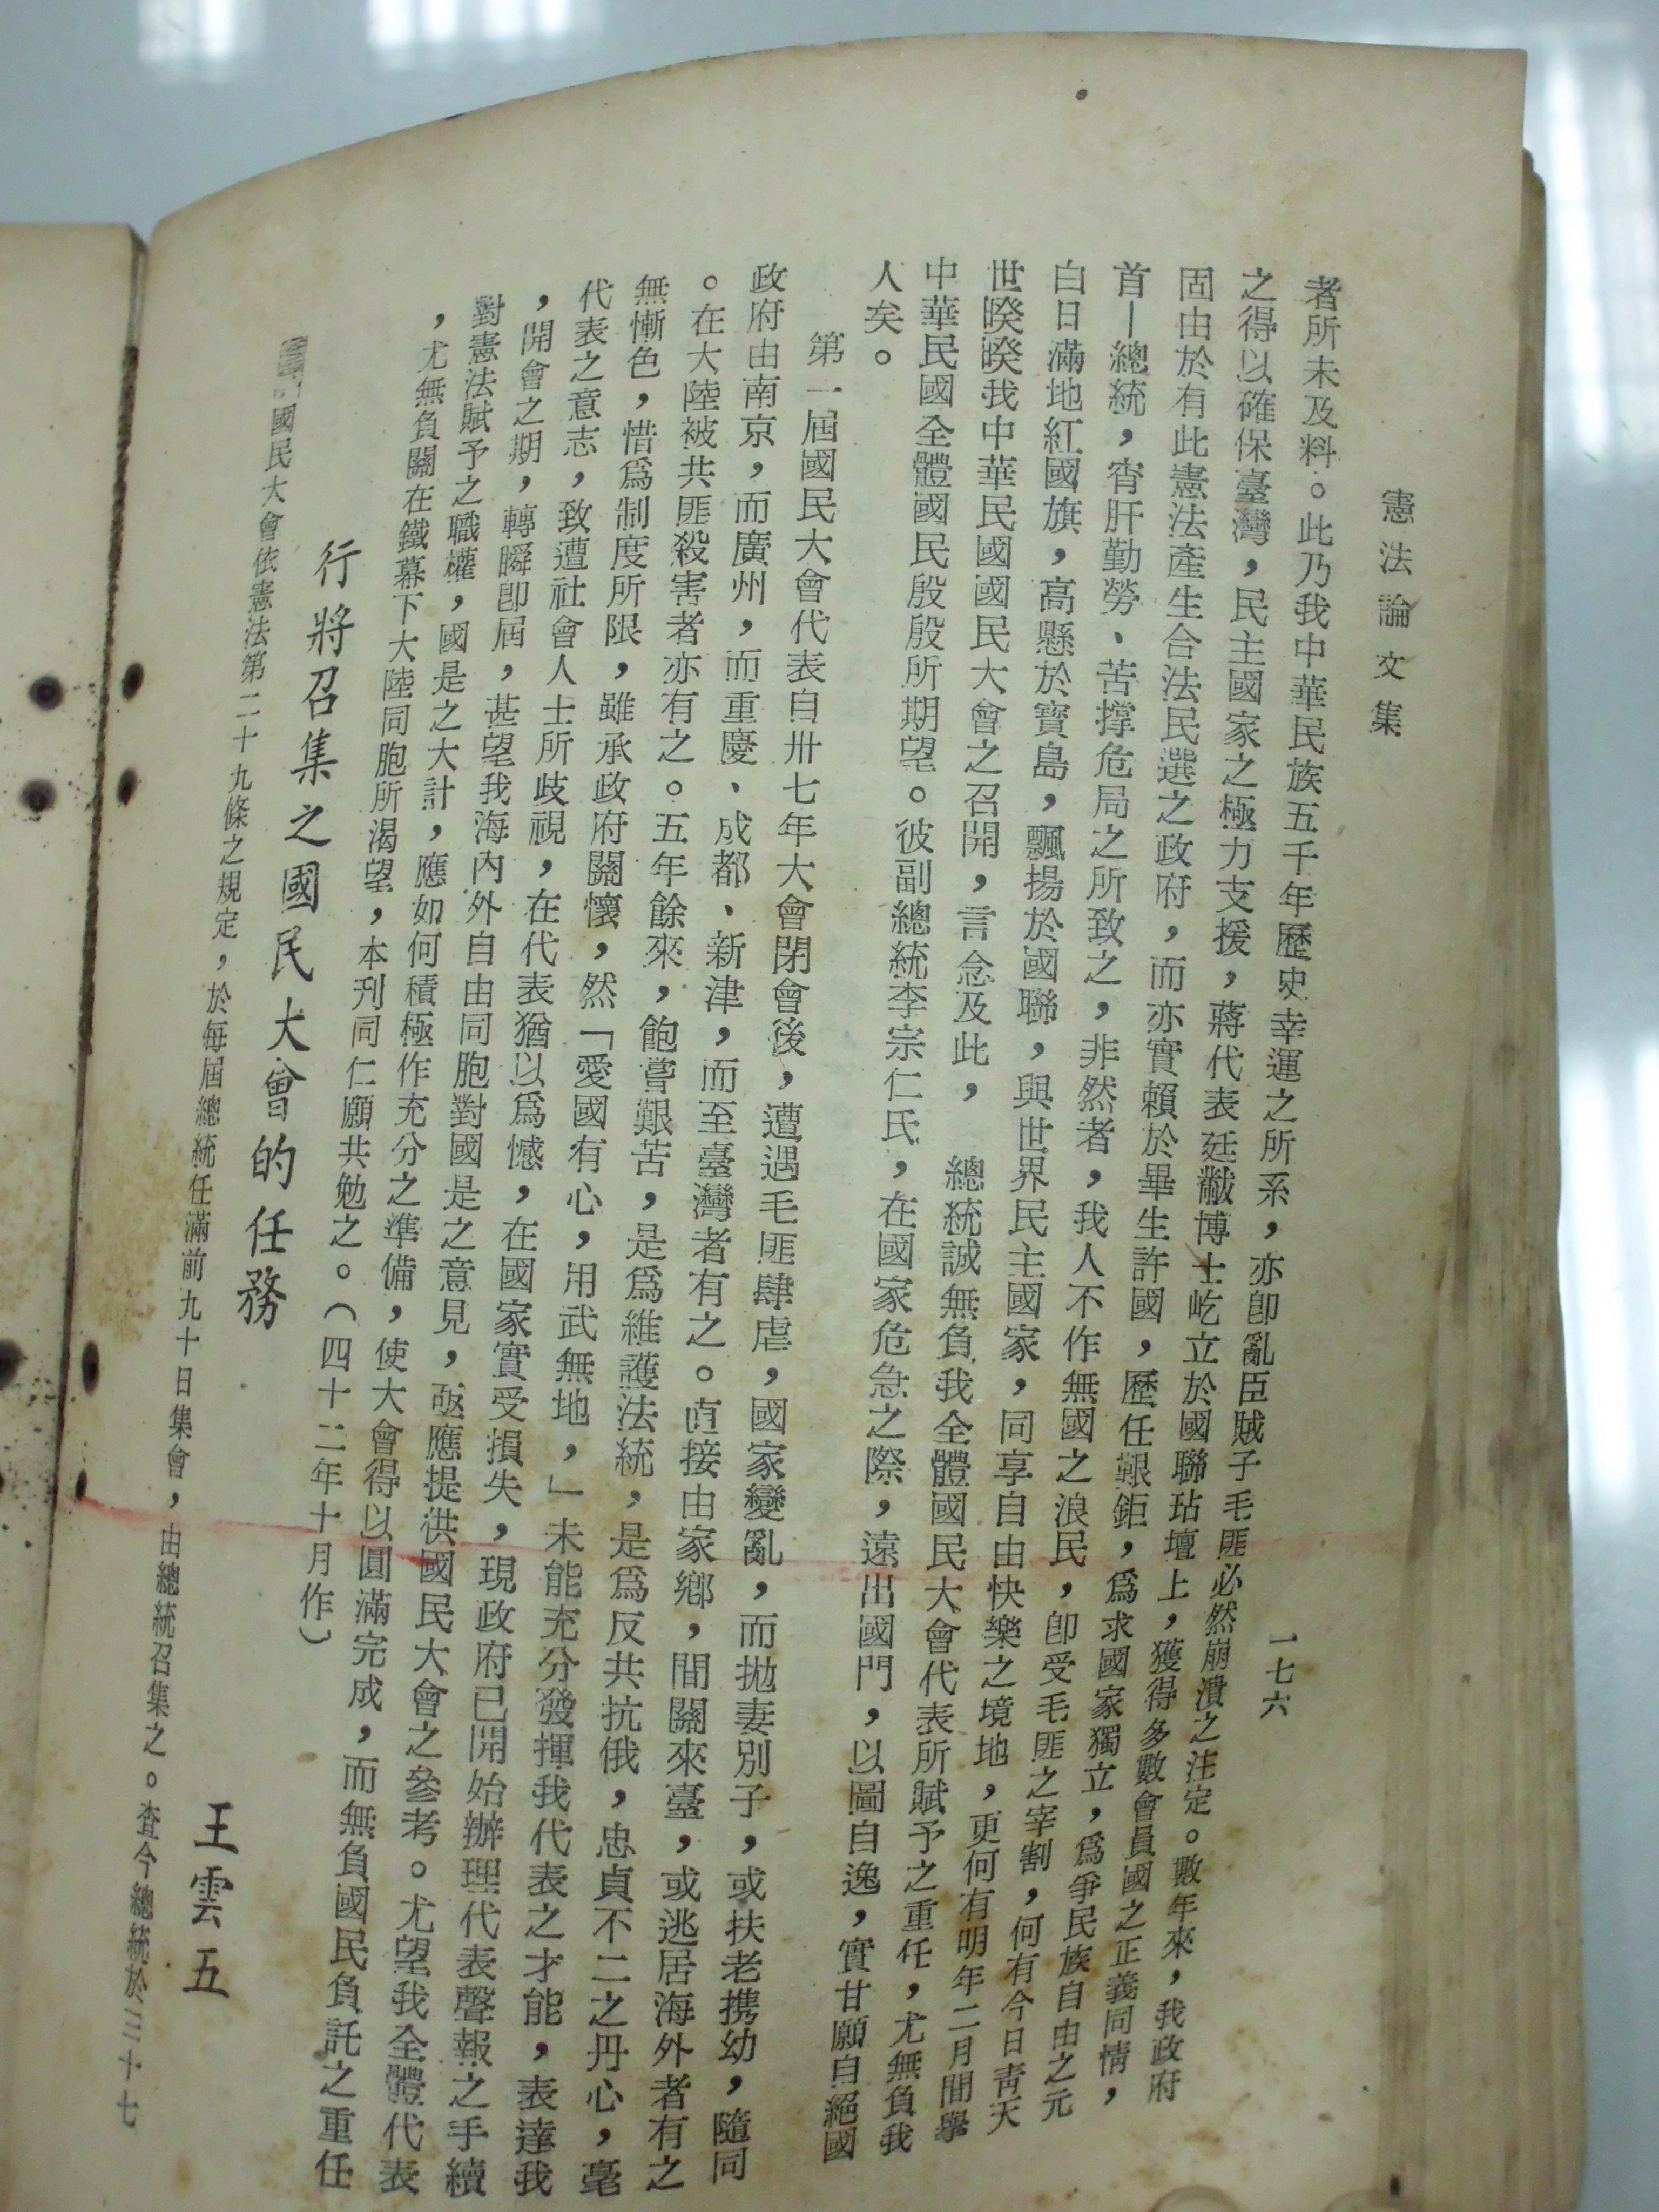 憲法論文集
一七六
者所未及料。此乃我中華民族五千年歷史幸運之所系，亦卽亂臣賊子毛匪必然崩潰之注定。數年來，我政府
之得以確保臺灣，民主國家之極力支援，蔣代表廷黻博士屹立於國聯玷壇上，獲得多數會員國之正義同情，
固由於有此憲法產生合法民選之政府，而亦實賴於畢生許國，歷任艱鉅，爲求國家獨立，爲爭民族自由之元
首—總統，宵肝勤勞、苦撑危局之所致之，非然者，我人不作無國之浪民，卽受毛匪之宰割，何有今日靑天
白日滿地紅國旗，高懸於寶島，飄揚於國聯，與世界民主國家，同享自由快樂之境地，更何有明年二月間擧
世睽睽我中華民國國民大會之召開，言念及此，　總統誠無負我全體國民大會代表所賦予之重任，尤無負我
中華民國全體國民殷殷所期望。彼副總統李宗仁氏，在國家危急之際，遠出國門，以圖自逸，實甘願自絕國
人矣。
第一屆國民大會代表自卅七年大會閉會後，遭遇毛匪肆虐，國家變亂，而拋妻別子，或扶老携幼，隨同
政府由南京，而廣州，而重慶、成都、新津，而至臺灣者有之。直接由家鄉，間關來臺，或逃居海外者有之
。在大陸被共匪殺害者亦有之。五年餘來，飽嘗艱苦，是爲維護法統，是爲反共抗俄，忠貞不二之丹心，毫
無慚色，惜爲制度所限，雖承政府關懷，然「愛國有心，用武無地，」未能充分發揮我代表之才能，表達我
代表之意志，致遭社會人士所歧視，在代表猶以爲憾，在國家實受損失，現政府已開始辦理代表聲報之手續
，開會之期，轉瞬卽屆，甚望我海內外自由同胞對國是之意見，亟應提供國民大會之參考。尤望我全體代表
對憲法賦予之職權，國是之大計，應如何積極作充分之準備，使大會得以圓滿完成，而無負國民負託之重任
，尤無負關在鐵幕下大陸同胞所渴望，本刊同仁願共勉之。（四十二年十月作）
行將召集之國民大會的任務
王雲五
國民大會依憲法第二十九條之規定，於每屆總統任滿前九十日集會，由總統召集之。查今總統於三十七